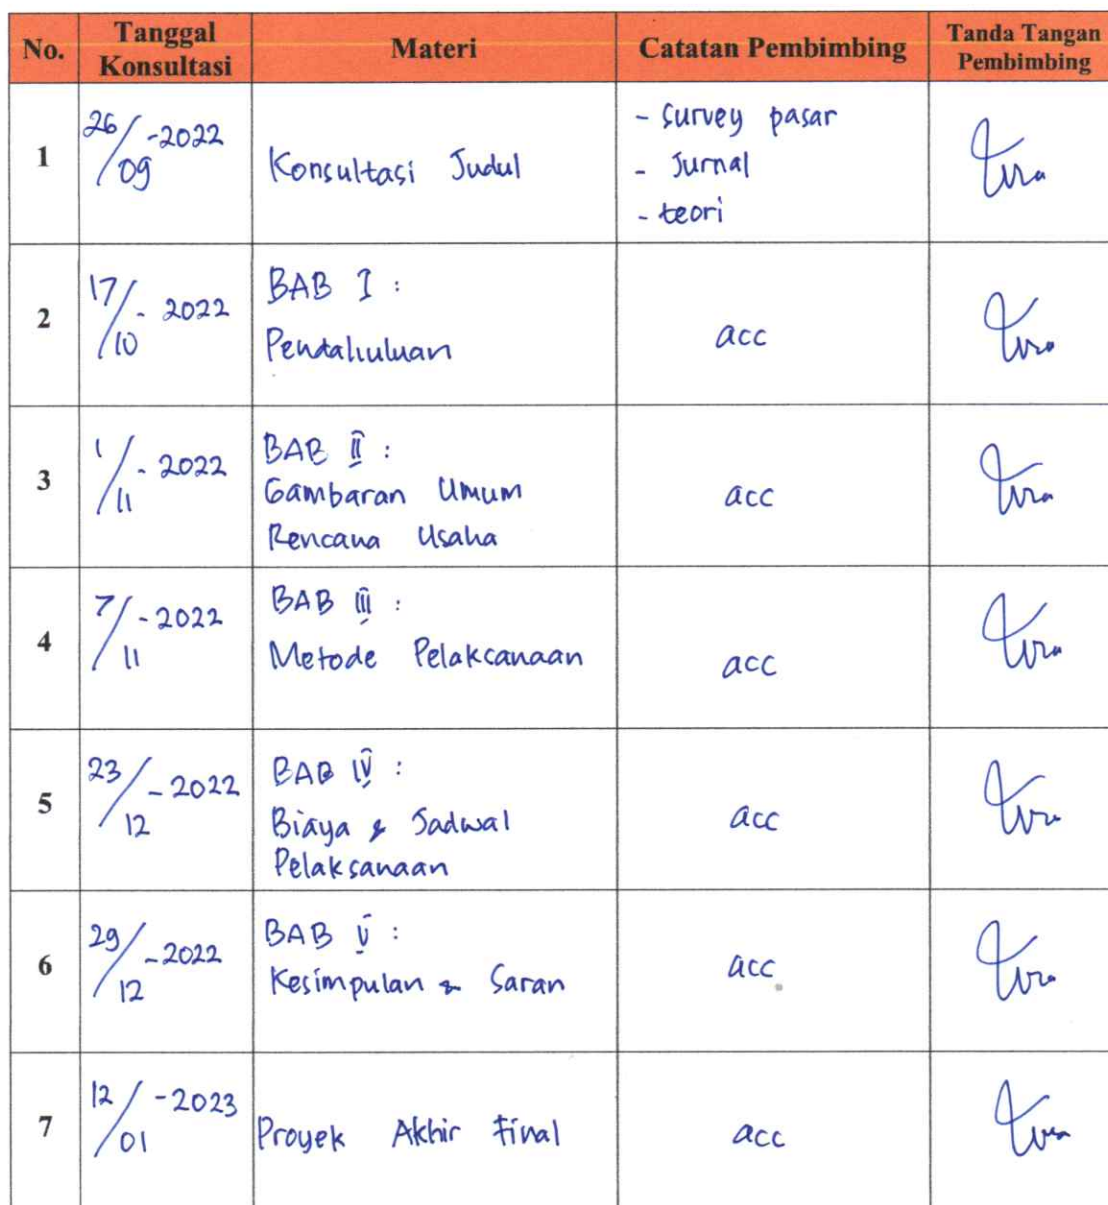 No. Tanggal Konsultasi Materi Catatan Pembimbing Tanda Tangan Pembimbing
1 26/09-2022 Konsultasi Judul - survey pasar
- Jurnal
- teori
2 17/10-2022 BAB I :
Pendahuluan acc
3 1/11-2022 BAB II :
Gambaran Umum acc
Rencana Usaha
4 7/11-2022 BAB III :
Metode Pelaksanaan acc
5 23/12-2022 BAB IV :
Biaya & Jadwal acc
Pelaksanaan
6 29/12-2022 BAB V :
Kesimpulan & Saran acc
7 12/01-2023 Proyek Akhir Final acc